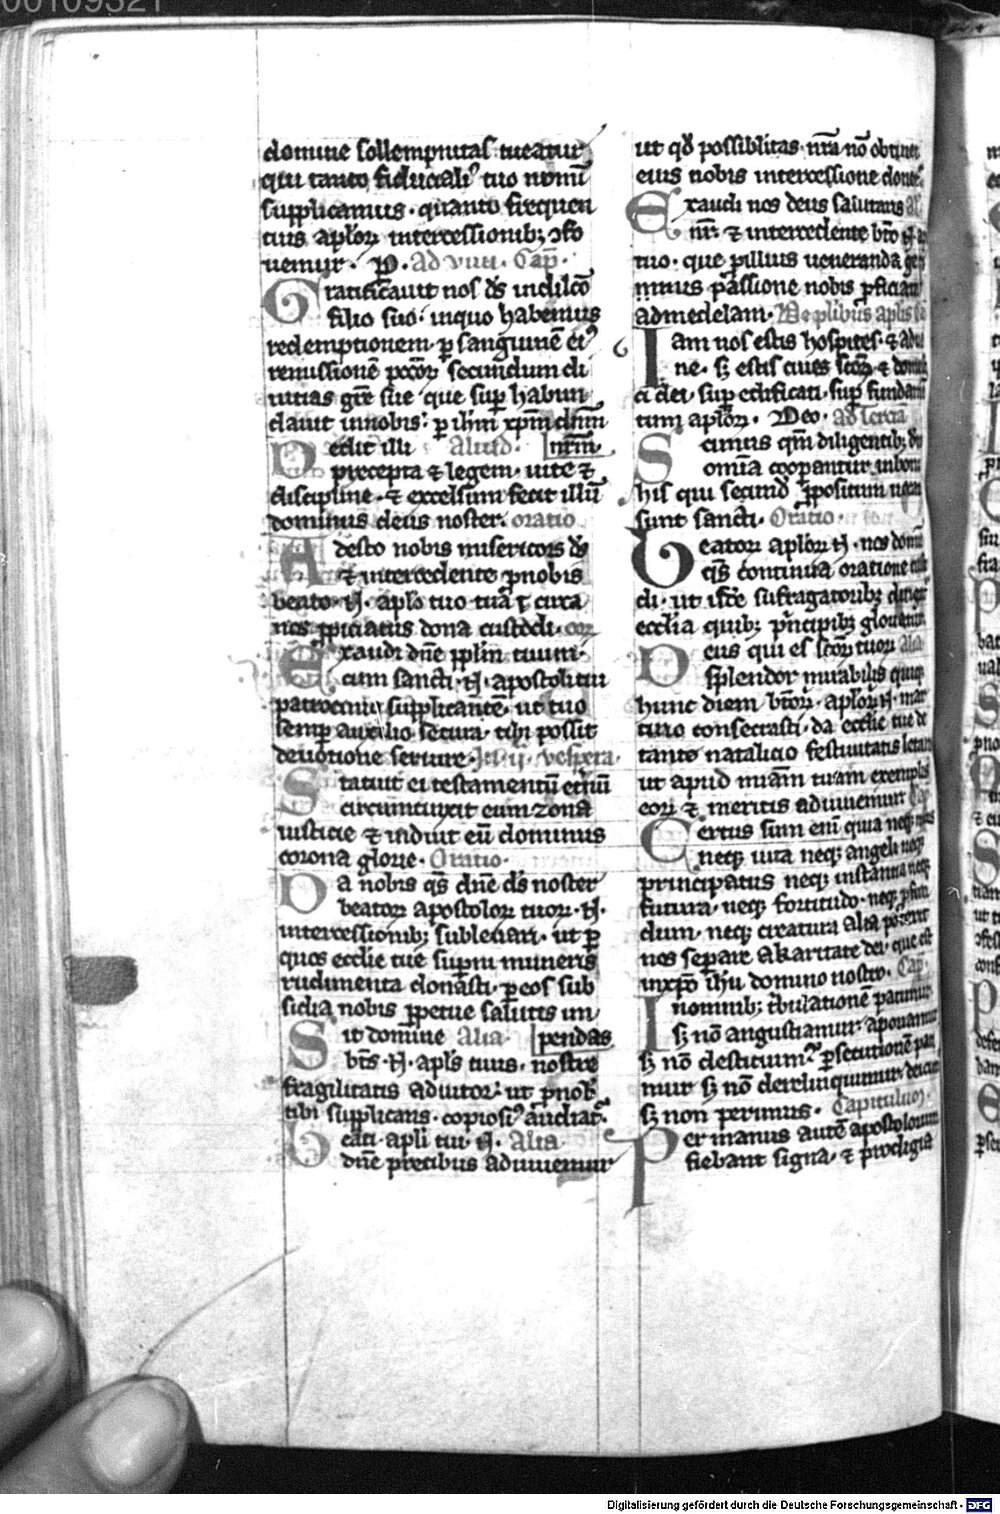 00109321
domine sollempnitas tueatur
qui tanto fiducialiꝰ tuo nomī
supplicamus · quanto frequen
tius aplōꝝ intercessionibꝫ ꝯfo
uemur · ꝓ. ad viiii. Cap̄.
Gratificauit nos ds̄ in dilc̄o
filio suo · in quo habemus
redemptionem · ꝑ sanguinē eiꝰ
remissionē pcc̄oꝝ secundum di
uitias grē sue · que suꝑ habun
dauit in nobis · ꝑ ihm̄ xp̄m dn̄m
Dedit illi Aliud. nr̄m.
precepta ⁊ legem · uite ⁊
discipline · ⁊ excelsum fecit illū
dominus deus noster. oratio
Adesto nobis misericors ds̄
⁊ intercedente ꝓ nobis
beato · N̄ · aplō tuo tua circa
nos ꝓpiciatus dona custodi.
Exaudi dn̄e pplm̄ tuum ·
cum sancti · N̄ · apostoli tui
patrocinio supplicantē · ut tuo
semꝑ auxilio secura · tibi possit
deuotione seruire. In ij. vespera.
Statuit ei testamentū et̄nū
circumcinxit eum zona
iusticie ⁊ induit eū dominus
corona glorie. Oratio.
Da nobis qs̄ dn̄e ds̄ noster
beatoꝝ apostoloꝝ tuoꝝ · N̄ ·
intercessionibꝫ subleuari · ut ꝑ
quos ecclie tue suꝑni muneris
rudimenta donasti · ꝑ eos sub
sidia nobis ꝑpetue salutis im
Sit domine Alia. pendas
bt̄s · N̄ · apls̄ tuus · nostre
fragilitatis adiutor · ut ꝓ nob̄
tibi supplicans · copiosiꝰ audiat̄.
Beati apli tui N̄. Alia
dn̄e precibus adiuuemur
ut qd̄ possiblitas nr̄a nō obtinet
eius nobis intercessione donet̄.
Exaudi nos deus salutaris
nr̄ · ⁊ intercedente bt̄o N̄
tuo · que ꝑ illius ueneranda
minus passione nobis ꝓficiant
ad medelam. De plibus aplis
Iam non estis hospites · ⁊ adu
ne · sꝫ estis ciues scōꝝ ⁊ domest
ci dei · suꝑ edificati · suꝑ fundam̄
tum aplōꝝ. Deo. ad terciā
Scimus qm̄ diligentibꝫ dm̄
omīa cooperantur in bonū
his qui secund̄ ꝓpositum uocati
sunt sancti. Oratio.
Beatoꝝ aplōꝝ N̄ · nos domī
qs̄ continua oratione custo
di · ut iisdē suffragatoribꝫ dirigat̄
ecclia quibꝫ pͥncipibꝫ gloriatur
Deus qui es scōꝝ tuoꝝ alia
splendor mirabilis quiqꝫ
hunc diem bt̄oꝝ · aplōꝝ N̄ · mar
tirio consecrasti · da ecclie tue de
tanto natalicio festiuitatis letari
ut apud miam̄ tuam exemplis
eoꝝ ⁊ meritis adiuuemur Cap̄
Certus sum eni quia neqꝫ mors
neqꝫ uita neqꝫ angeli neqꝫ
principatus neqꝫ instantia neqꝫ
futura · neqꝫ fortitudo · neqꝫ ꝓfun
dum · neqꝫ creatura alia poterit
nos separare a karitate dei · que est
in xp̄o ihu domino nostro. Cap̄.
In omnibꝫ tͥbulationē patimur
sꝫ nō angustiamur · aporiamur
sꝫ nō destituimur · ꝑsecutionē pati
mur sꝫ nō derelinquimur · deicimur
sꝫ non perimus. Capitulum.
Per manus autē apostolorum
fiebant signa · ⁊ prodigia
Digitalisierung gefördert durch die Deutsche Forschungsgemeinschaft - DFG